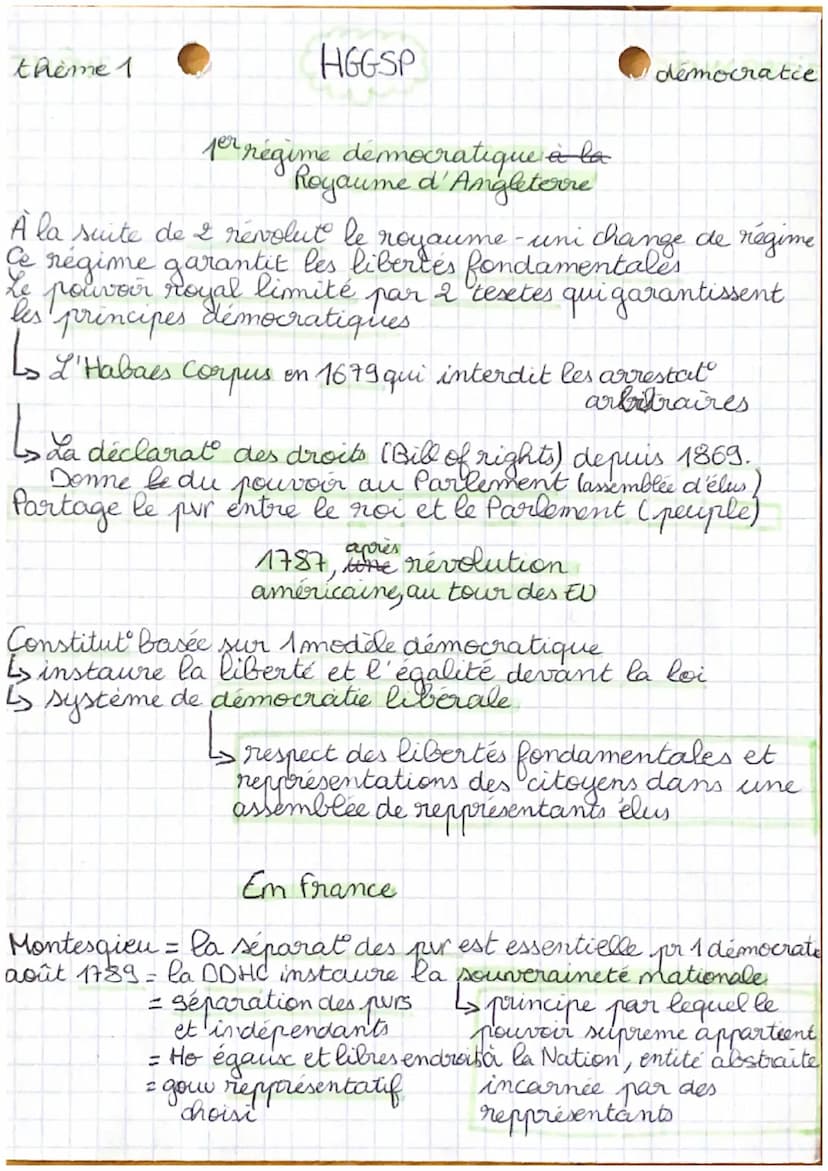 thème 1 HGGSP démocratie
1er régime démocratique à la
Royaume d'Angleterre
À la suite de 2 révolut° le royaume-uni change de régime
Ce régime garantit les libertés fondamentales
Le pouvoir royal limité par 2 tesetes qui garantissent
les principes démocratiques
↳ L'Habaes Corpus en 1679 qui interdit les arrestat°
arbitraires
↳ La déclarat° des droits (Bill of rights) depuis 1869.
Donne le du pouvoir au Parlement (assemblée d'élus)
Partage le pvr entre le roi et le Parlement (peuple)
1787, une après révolution
américaine, au tour des EU
Constitut° basée sur 1 modèle démocratique
↳ instaure la liberté et l'égalité devant la loi
↳ système de démocratie libérale
↳ respect des libertés fondamentales et
repprésentations des citoyens dans une
assemblée de repprésentants élus
En France
Montesqieu = la séparat° des pvr est essentielle pr 1 démocrate
août 1789 = la DDHC instaure la souveraineté nationale
= séparation des pvrs ↳ principe par lequel le
et indépendants pouvoir suprème appartient
= Ho égaux et libres en droits à la Nation, entité abstraite
= gouv repprésentatif incarnée par des
choisi repprésentants